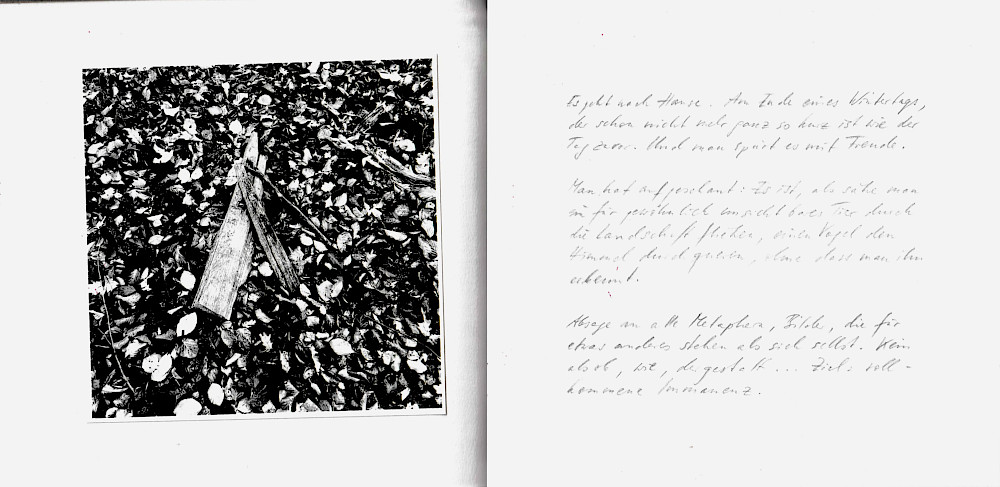 Es geht nach Hause. Am Ende eines Wintertags,
der schon nicht mehr ganz so kurz ist wie der
Tag zuvor. Und man spürt es mit Freude.
Man hat aufgeschaut: Es ist, als sähe man
ein für gewöhnlich unsichtbares Tier durch
die Landschaft fliehen, einen Vogel den
Himmel durchqueren, ohne dass man ihn
erkennt.
Absage an alle Metaphern, Bilder, die für
etwas anderes stehen als sich selbst. Kein
als ob, wie, dergestalt ... Ziel: voll-
kommene Immanenz.